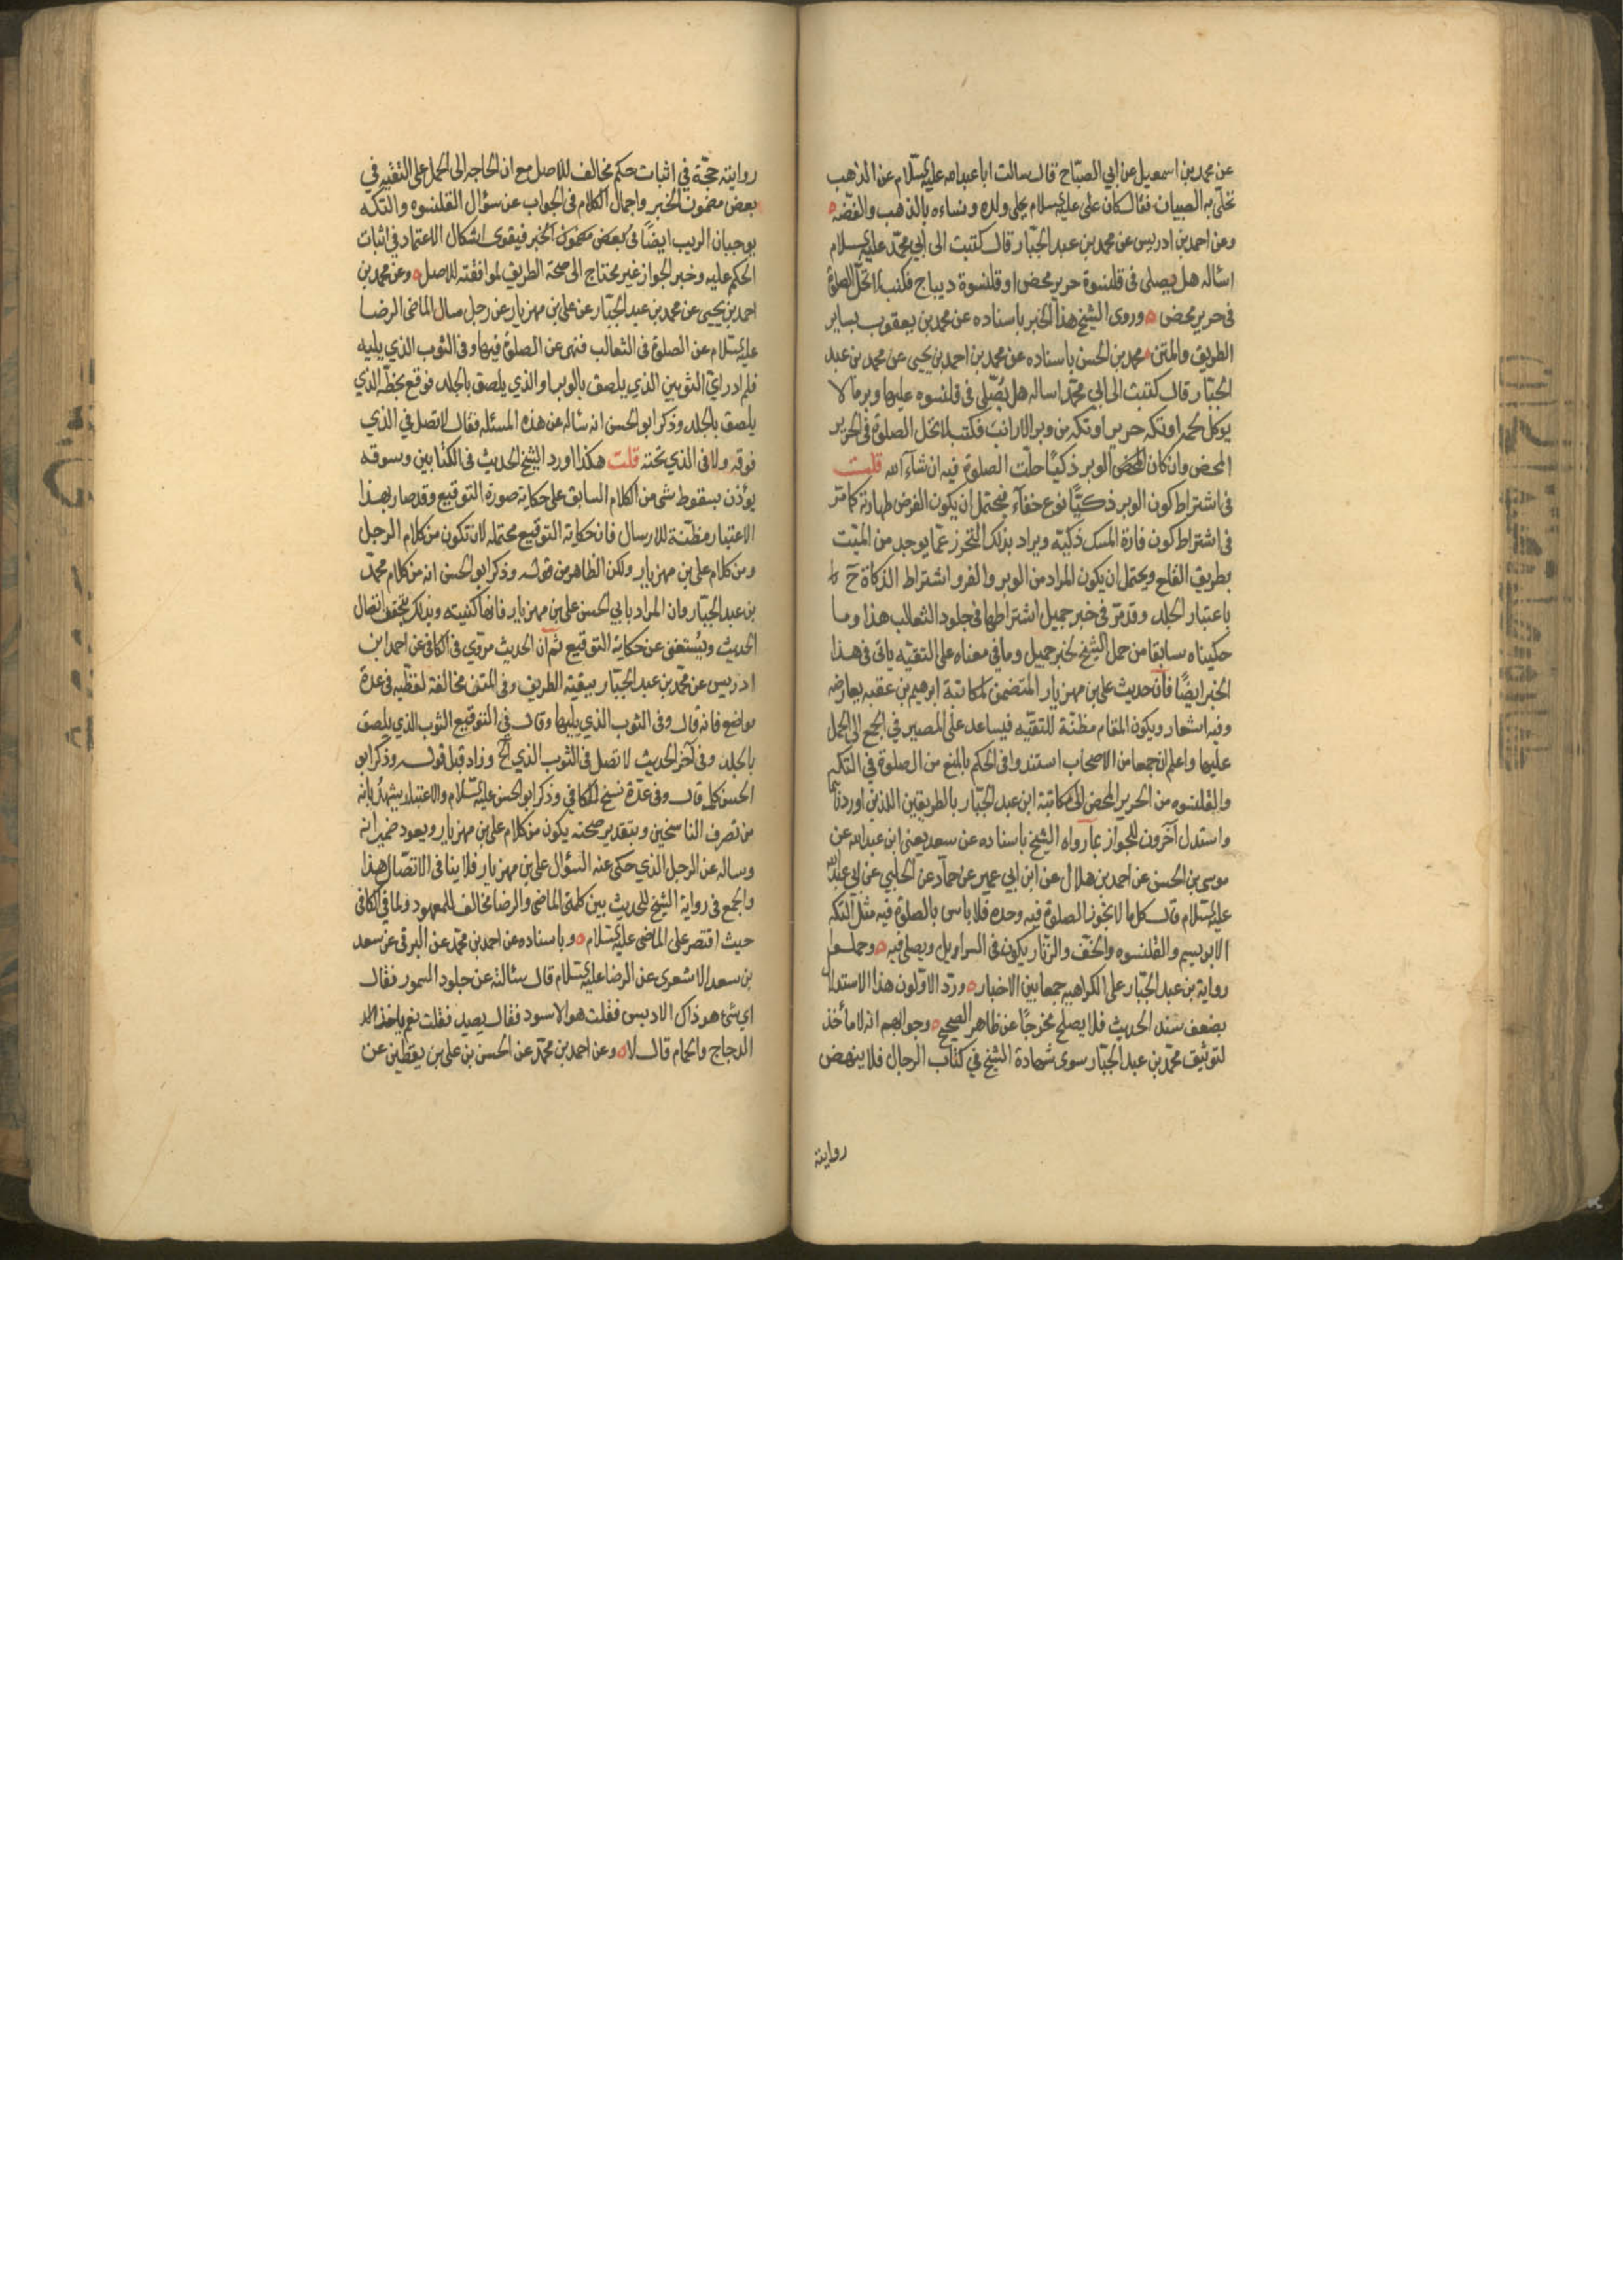 عن محمد بن اسمعيل عن ابي الصباح قال سالت ابا عبدالله عليه السلام عن الذهب
تحلى به الصبيان فقال كان على عليه السلام يحلى ولده ونساءه بالذهب والفضه
وعن احمد بن ادريس عن محمد بن عبد الجبار قال كتبت الى ابي محمد عليه السلام
اساله هل يصلى فى قلنسوة حرير محض او قلنسوة ديباج فكتب لا تحل الصلوة
فى حرير محض وروى الشيخ هذا الخبر باسناده عن محمد بن يعقوب بساير
الطريق والمتن محمد بن الحسن باسناده عن محمد بن احمد بن يحيى عن محمد بن عبد
الجبار قال كتبت الى ابي محمد اساله هل يصلى فى قلنسوه عليها وبر ما لا
يوكل لحمه او تكه حرير او تكه من وبر الارانب فكتب لا تحل الصلوة فى الحرير
المحض وان كان الوبر ذكيا حلت الصلوة فيه ان شاء الله قلت
فى اشتراط كون الوبر ذكيا نوع خفاء فيحتمل ان يكون الغرض طهارته كما مر
فى اشتراط كون فارة المسك ذكيه ويراد بذلك التحرز عما يوجد من الميت
بطريق القلع ويحتمل ان يكون المراد من الوبر والفرو اشتراط الذكاة ح
باعتبار الجلد وقد مر فى خبر جميل اشتراطها فى جلود الثعالب هذا وما
حكيناه سابقا من حمل الشيخ لخبر جميل وما في معناه على التقيه ياتى فى هذا
الخبر ايضا فان حديث على بن مهزيار المتضمن لمكاتبة ابرهيم بن عقبه يعارضه
وفيه اشعار وبكون المقام مظنة للتقيه فيساعد على المصير في الجمع الى الحمل
عليها واعلم ان جمعا من الاصحاب استندوا فى الحكم بالمنع من الصلوة في التكه
والقلنسوه من الحرير المحض الى مكاتبة ابن عبد الجبار بالطريقين اللذين اوردناهما
واستدل آخرون للجواز بما رواه الشيخ باسناده عن سعد يعنى ابن عبدالله عن
موسى بن الحسن عن احمد بن هلال عن ابن ابي عمير عن حماد عن الحلبي عن ابي عبدالله
عليه السلام قال كل ما لا تجوز الصلوة فيه وحده فلا باس بالصلوة فيه مثل التكه
الابريسم والقلنسوه والخف والزنار يكون فى السراويل ويصلى فيه وحملوا
رواية بن عبد الجبار على الكراهيه جمعا بين الاخبار ورد الاولون هذا الاستدلال
بضعف سند الحديث فلا يصلح مخرجا عن ظاهر الصحيح وجوابهم انه لا مأخذ
لتوثيق محمد بن عبد الجبار سوى شهادة الشيخ في كتاب الرجال فلا ينهض
روايته
روايته حجة في اثبات حكم مخالف للاصل مع ان الحاجه الى الحمل على التقيه في
بعض مضمون الخبر واجمال الكلام فى الجواب عن سؤال القلنسوه والتكه
يوجبان الريب ايضا فى بعض مضمون الخبر فيقوى اشكال الاعتماد في اثبات
الحكم عليه وخبر الجواز غير محتاج الى صحة الطريق لموافقته للاصل وعن محمد بن
احمد بن يحيى عن محمد بن عبد الجبار عن على بن مهزيار عن رجل سال الماضى الرضا
عليه السلام عن الصلوة فى الثعالب فنهى عن الصلوة فيها وفى الثوب الذي يليه
فلم ادر اي الثوبين الذي يلصق بالوبر او الذي يلصق بالجلد فوقع بخطه الذي
يلصق بالجلد وذكر ابو الحسن انه ساله عن هذه المسئله فقال لا تصل في الذي
فوقه ولا فى الذي تحته قلت هكذا اورد الشيخ الحديث فى الكتابين وسوقه
يؤذن بسقوط شى من الكلام السابق على حكاية صورة التوقيع وقد صار بهذا
الاعتبار مظنة للارسال فان حكاية التوقيع محتمله لان تكون من كلام الرجل
ومن كلام على بن مهزيار ولكن الظاهر من قوله وذكر ابو الحسن انه من كلام محمد
بن عبد الجبار وان المراد بابي الحسن على بن مهزيار فانها كنيته وبذلك يتحقق اتصال
الحديث ويستغنى عن حكاية التوقيع ثم ان الحديث مروي فى الكافى عن احمد ابن
ادريس عن محمد بن عبد الجبار ببقية الطريق وفى المتن مخالفة لفظيه فى عدة
مواضع فانه قال وفى الثوب الذي يليها وقال فى التوقيع الثوب الذي يلصق
بالجلد وفى آخر الحديث لا تصل فى الثوب الذي الخ وزاد قبل قوله وذكر ابو
الحسن كلمة قال وفى عدة نسخ للكافي وذكر ابو الحسن عليه السلام والاعتبار يشهد بانه
من تصرف الناسخين وبتقدير صحته يكون من كلام على بن مهزيار ويعود ضمير انه
وساله عن الرجل الذي حكى عنه السؤال على بن مهزيار فلا ينافى الاتصال هذا
والجمع فى رواية الشيخ للحديث بين كلمتى الماضى والرضا مخالف للمعهود ولما في الكافى
حيث اقتصر على الماضى عليه السلام وباسناده عن احمد بن محمد عن البرقى عن سعد
بن سعد الاشعرى عن الرضا عليه السلام قال سئالته عن جلود السمور فقال
اي شئ هو ذاك الادبس فقلت هو الاسود فقال يصيد فقلت نعم ياخذ
الدجاج والحمام قال لا وعن احمد بن محمد عن الحسن بن على بن يقطين عن